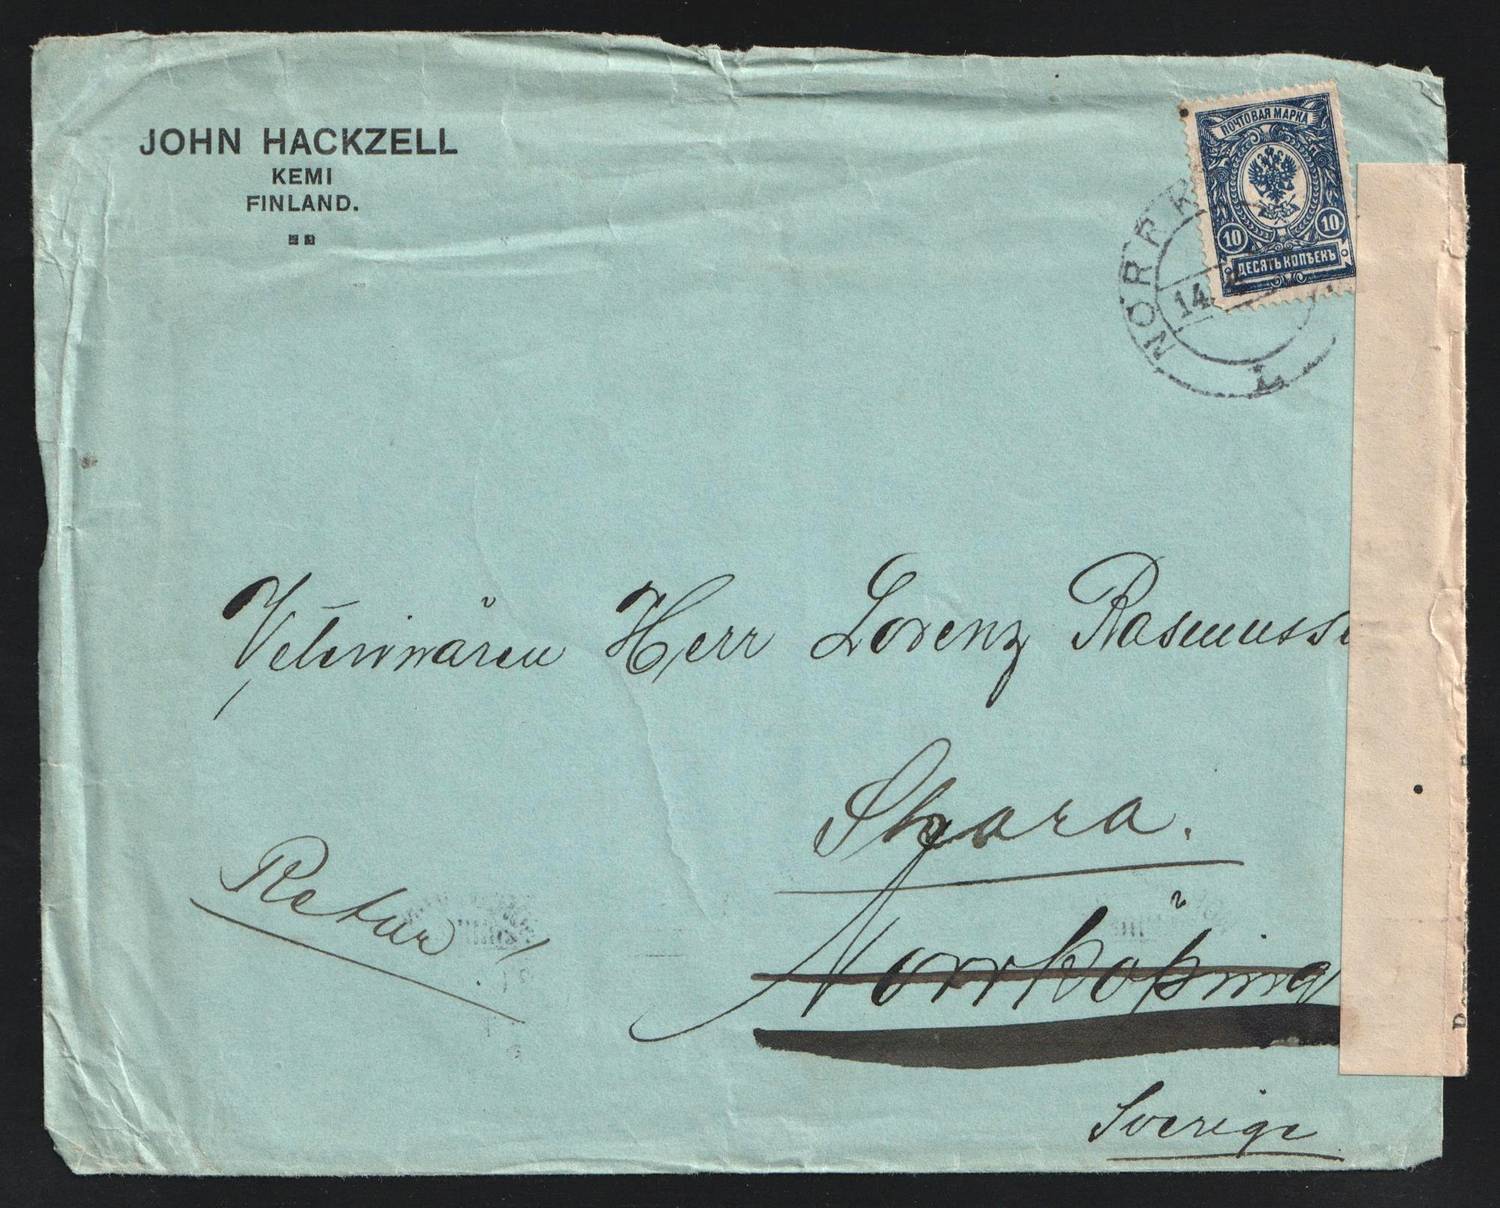 JOHN HACKZELL
KEMI
FINLAND.
ПОЧТОВАЯ МАРКА
10 10
ДЕСЯТЬ КОПѢЕКЪ
NORRK
14
L
Veterinären Herr Lorenz Rasmusse
Skara.
Retur
Norrköping
Sverige